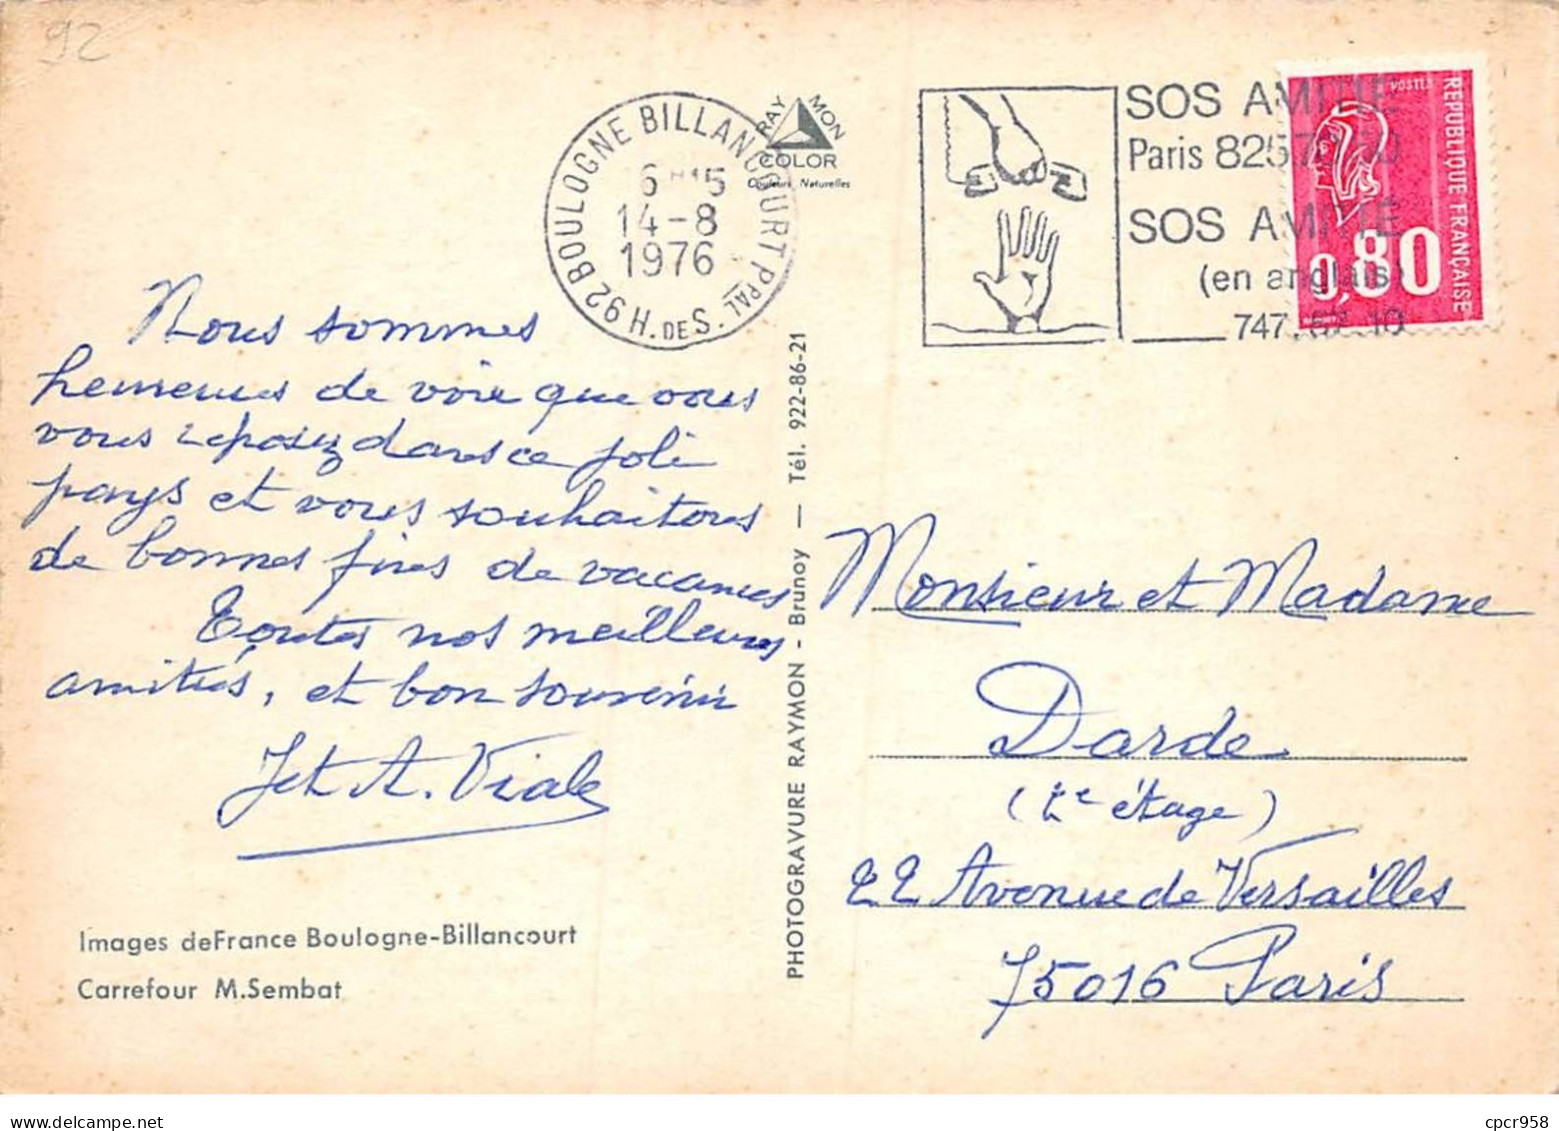 92
BOULOGNE BILLANCOURT PPAL
14-8
1976
92 H. DE S.
RAYMON
COLOR
Couleurs Naturelles
SOS AMITIE
Paris 825
SOS AMITIE
(en anglais)
747.57.10
POSTES
REPUBLIQUE FRANÇAISE
0,80
Nous sommes
heureuses de voir que vous
vous reposez dans ce joli
pays et vous souhaitons
de bonnes fins de vacances
Toutes nos meilleures
amitiés, et bon souvenir
J et A. Viale
Images deFrance Boulogne-Billancourt
Carrefour M.Sembat
PHOTOGRAVURE RAYMON - Brunoy — Tél. 922-86-21
Monsieur et Madame
Darde
étage)
22 Avenue de Versailles
75016 Paris
cpcr958